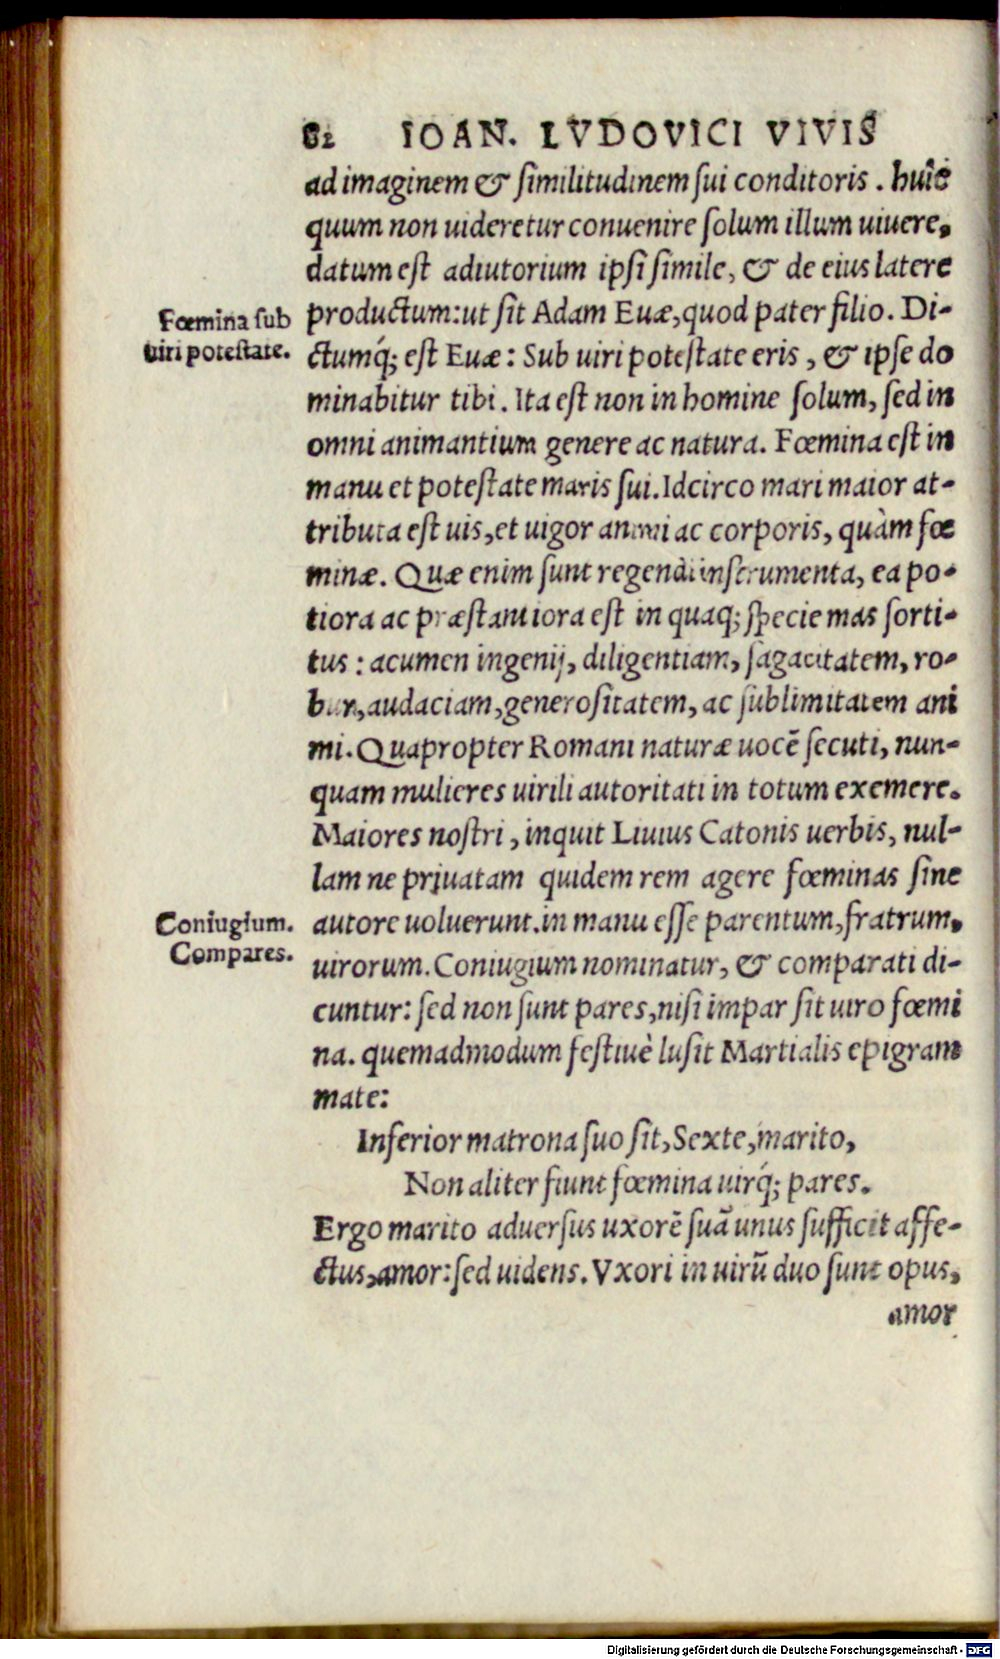 82 IOAN. LVDOVICI VIVIS
ad imaginem & ſimilitudinem ſui conditoris. huic
quum non uideretur conuenire ſolum illum uiuere,
datum eſt adiutorium ipſi ſimile, & de eius latere
Fœmina ſub
uiri poteſtate.
productum: ut ſit Adam Euæ, quod pater filio. Di-
ctumq́; eſt Euæ: Sub uiri poteſtate eris, & ipſe do
minabitur tibi. Ita eſt non in homine ſolum, ſed in
omni animantium genere ac natura. Fœmina eſt in
manu et poteſtate maris ſui. Idcirco mari maior at-
tributa eſt uis, et uigor animi ac corporis, quàm fœ
minæ. Quæ enim ſunt regendi inſtrumenta, ea po-
tiora ac præſtantiora eſt in quaq; ſpecie mas ſorti-
tus: acumen ingenij, diligentiam, ſagacitatem, ro-
bur, audaciam, generoſitatem, ac ſublimitatem ani
mi. Quapropter Romani naturæ uocē ſecuti, nun-
quam mulieres uirili autoritati in totum exemere.
Maiores noſtri, inquit Liuius Catonis uerbis, nul-
lam ne priuatam quidem rem agere fœminas ſine
Coniugium.
Compares.
autore uoluerunt. in manu eſſe parentum, fratrum,
uirorum. Coniugium nominatur, & comparati di-
cuntur: ſed non ſunt pares, niſi impar ſit uiro fœmi
na. quemadmodum feſtiuè luſit Martialis epigram
mate:
Inferior matrona ſuo ſit, Sexte, marito,
Non aliter fiunt fœmina uirq́; pares.
Ergo marito aduerſus uxorē ſuā unus ſufficit affe-
ctus, amor: ſed uidens. Vxori in uirū duo ſunt opus,
amor
Digitalisierung gefördert durch die Deutsche Forschungsgemeinschaft - DFG